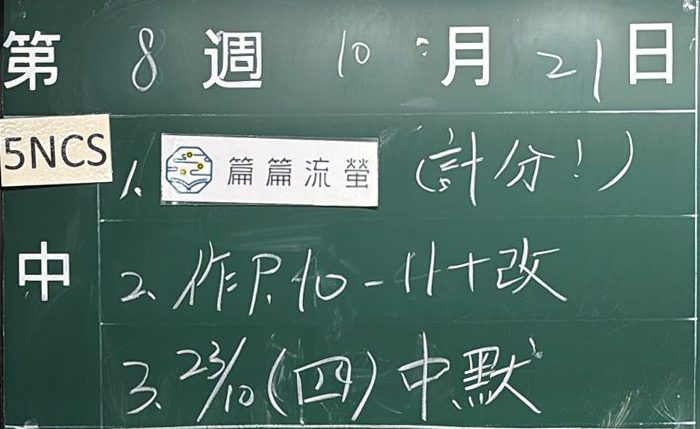 第 8 週 10 月 21 日
5NCS
1. 篇篇流螢 (計分!)
中
2. 作P.10-11+改
3. 23/10(四)中默